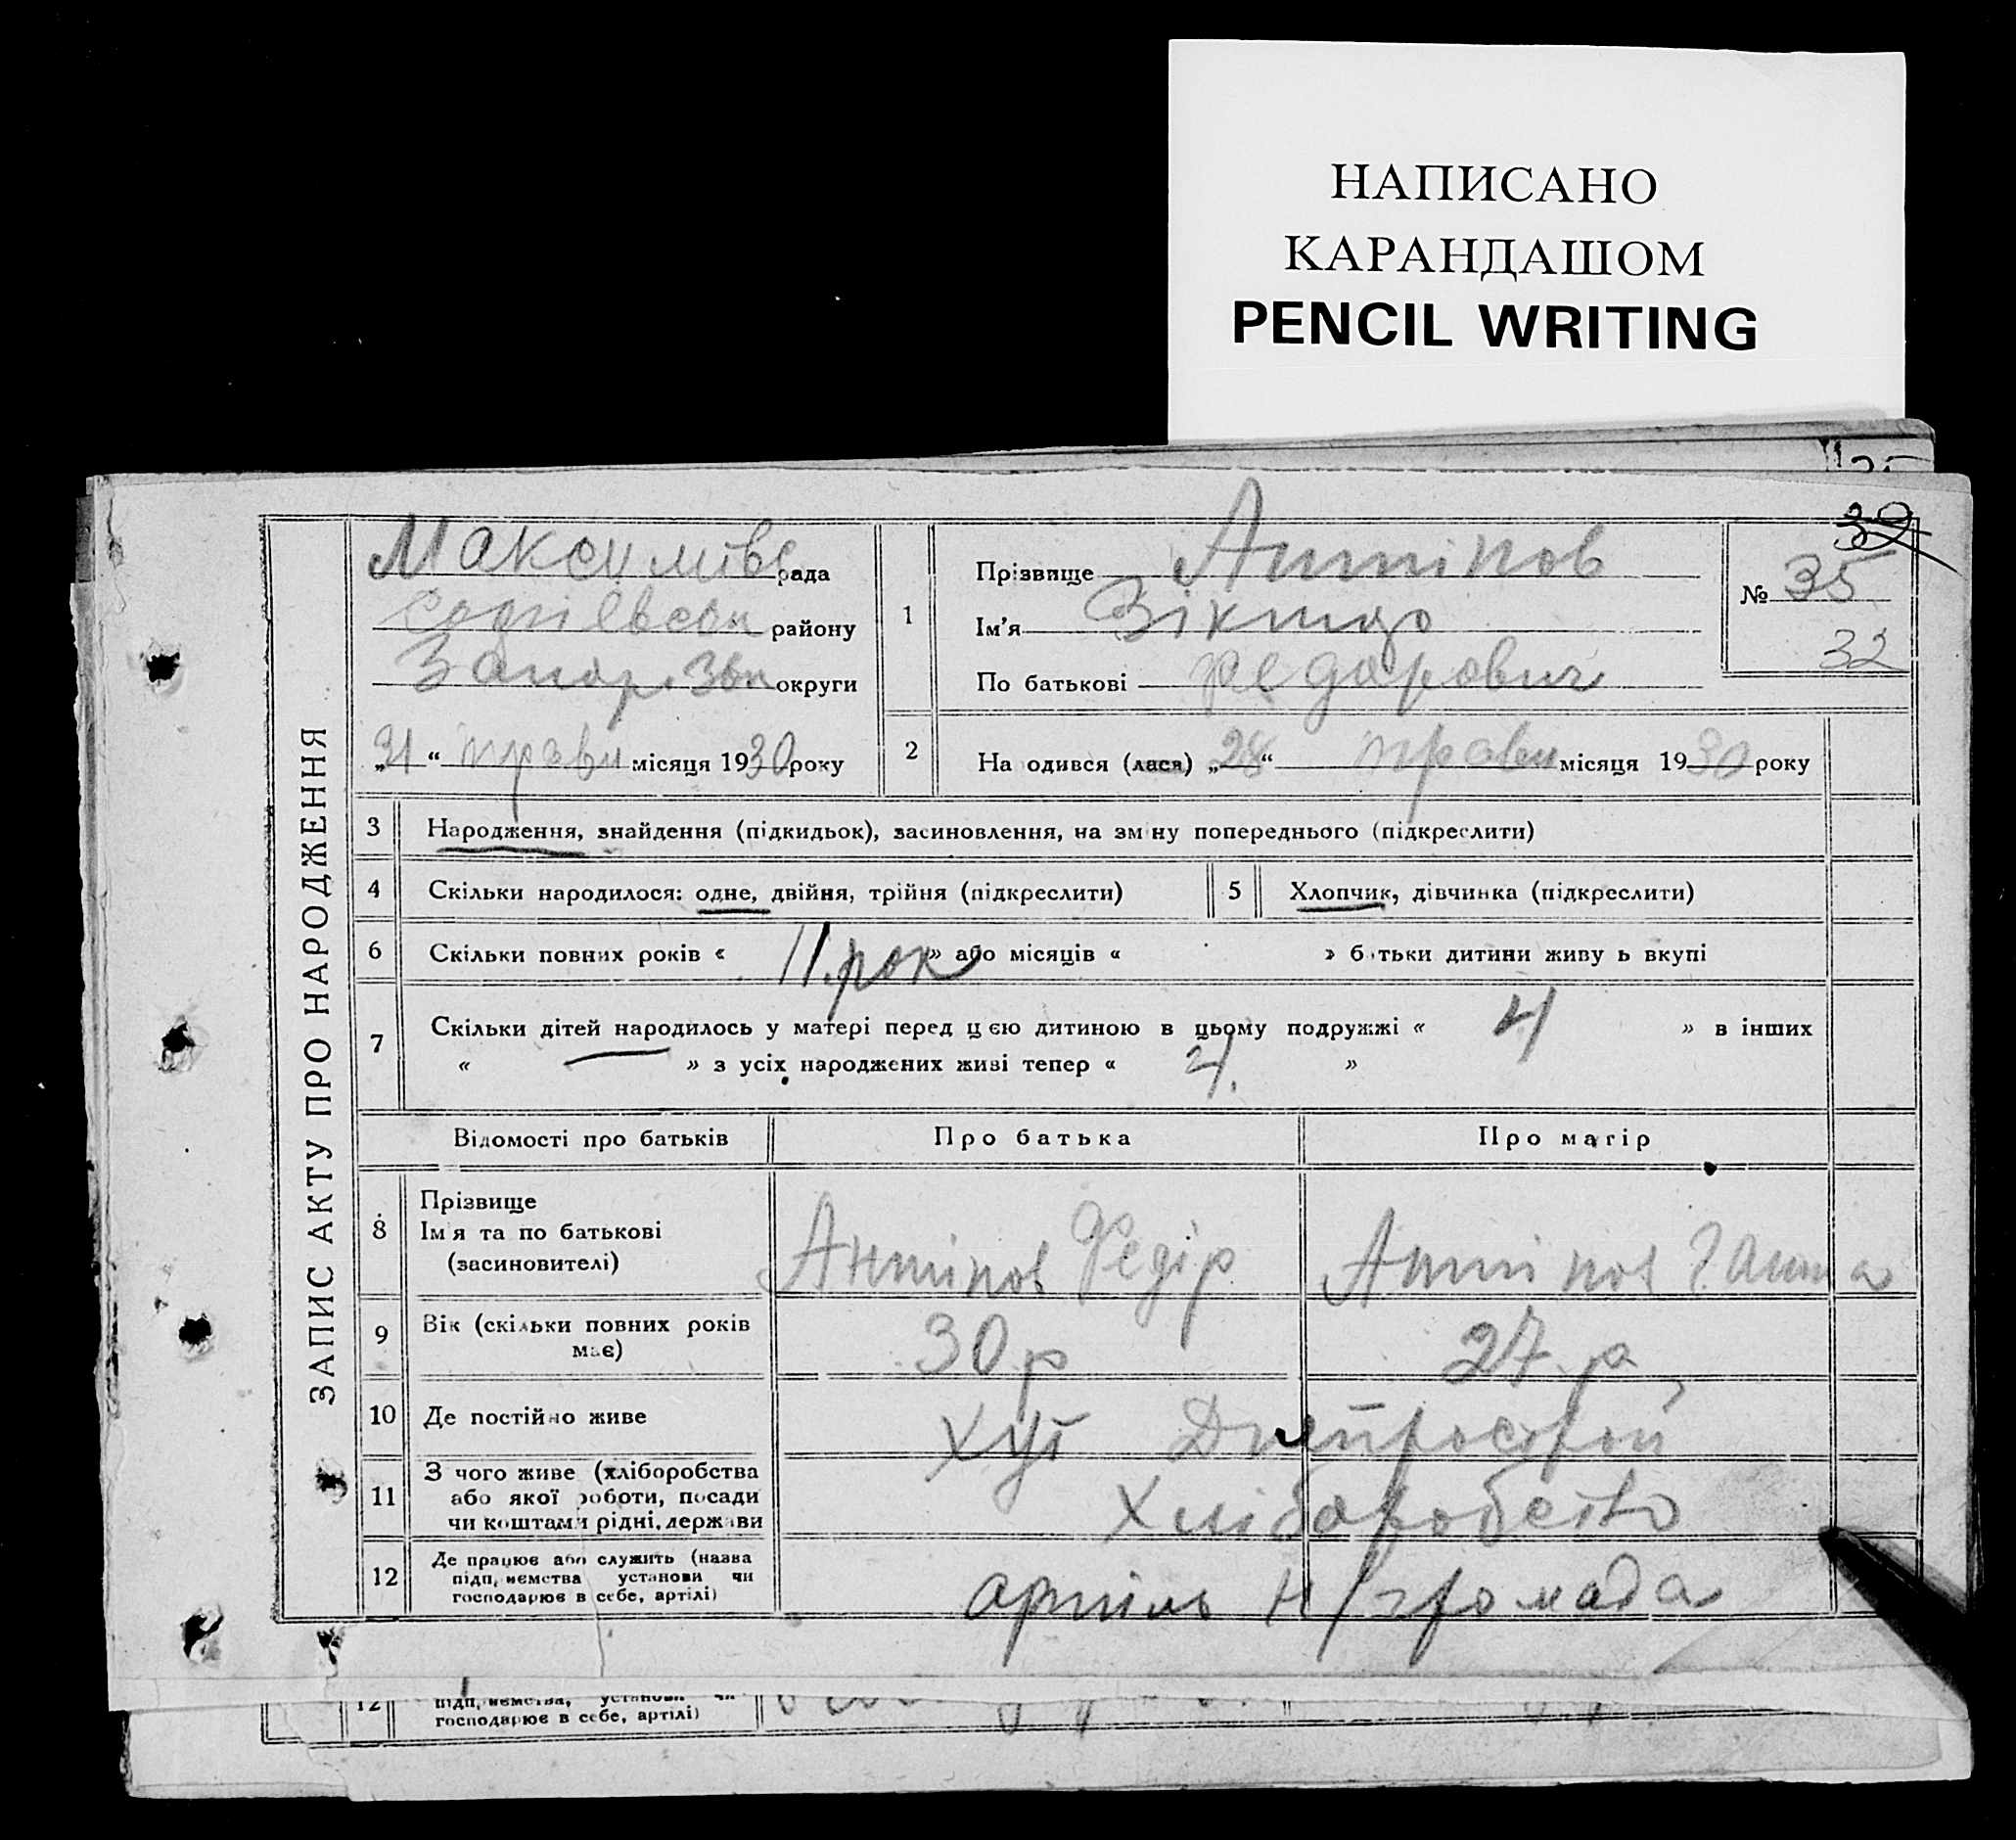 НАПИСАНО
КАРАНДАШОМ
PENCIL WRITING
ЗАПИС АКТУ ПРО НАРОДЖЕННЯ
Максимівс рада
району
Запорізьк округи
„31“ травн місяця 1930 року
1
Прізвище Антіпов
Ім'я
По батькові Федорович
32
№ 35
32
2 На одився (лася) „28“ травн місяця 1930 року
3 Народження, знайдення (підкидьок), засиновлення, на зміну попереднього (підкреслити)
4 Скільки народилося: одне, двійня, трійня (підкреслити) 5 Хлопчик, дівчинка (підкреслити)
6 Скільки повних років « 11 рок » або місяців « » батьки дитини живу ь вкупі
7 Скільки дітей народилось у матері перед цією дитиною в цьому подружжі « 4 » в інших
« — » з усіх народжених живі тепер « 4. »
Відомості про батьків Про батька Про матір
8 Прізвище
Ім'я та по батькові
(засиновителі)
Антіпов Федір Антіпов Ганна
9 Вік (скільки повних років
має)
30 р 27 р
10 Де постійно живе хут Днепрострой
11 З чого живе (хліборобства
або якої роботи, посади
чи коштами рідні, держави
Хліборобство
12 Де працює або служить (назва
підп,иємства установи чи
господарює в себе, артілі)
артіль Н/громада
12 підп,иємства, установи чи
господарює в себе, артілі)